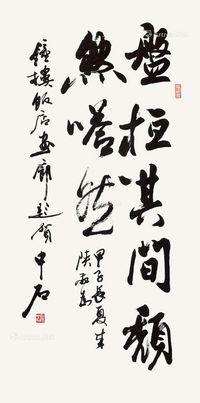 盤桓其間頹
然嗒然
甲子長夏來
陝西為
鐘樓飯店画廊題賀
中石